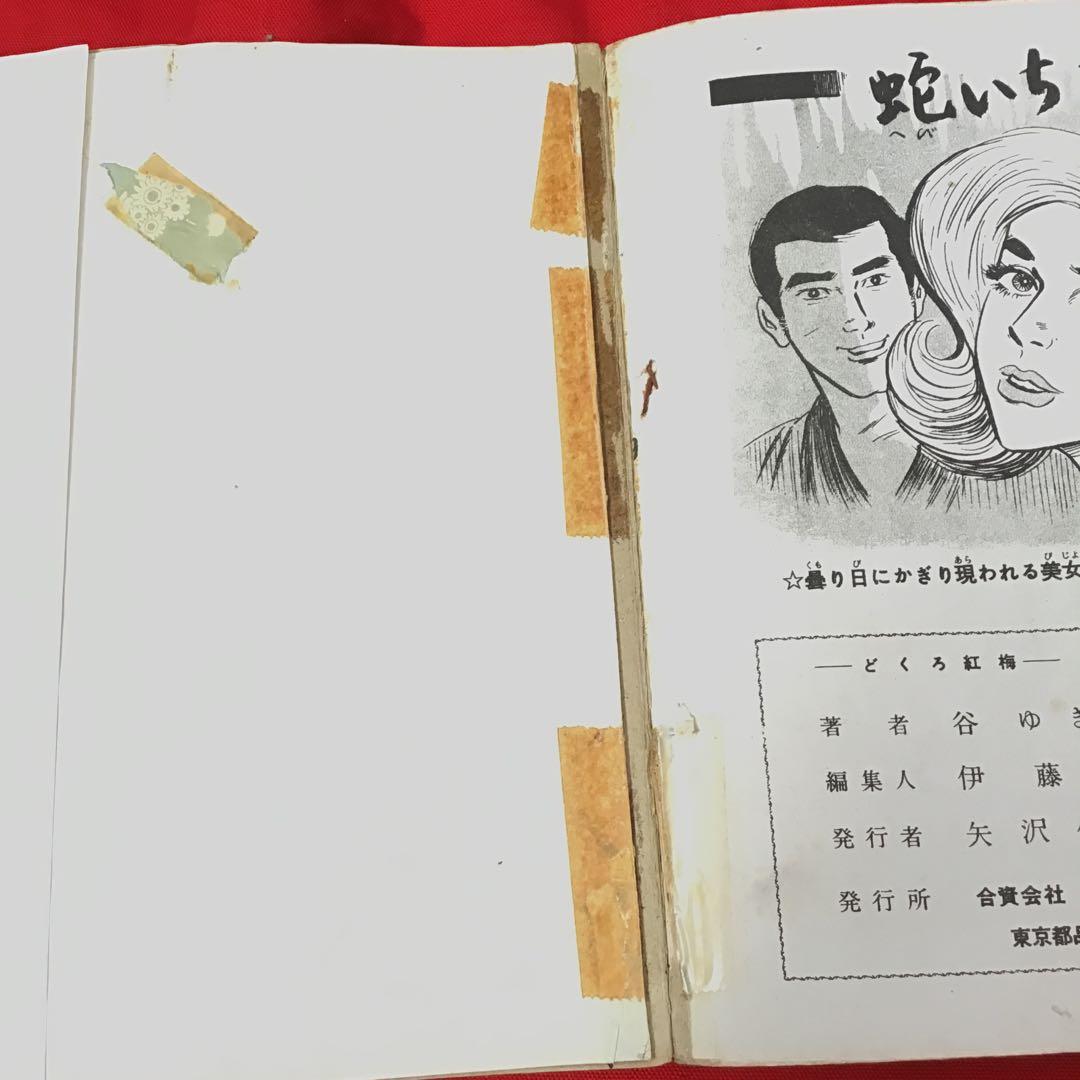 蛇いち
へび
☆曇り日にかぎり現われる美女
― どくろ紅梅 ―
著者 谷ゆ
編集人 伊藤
発行者 矢沢
発行所 合資会社
東京都品